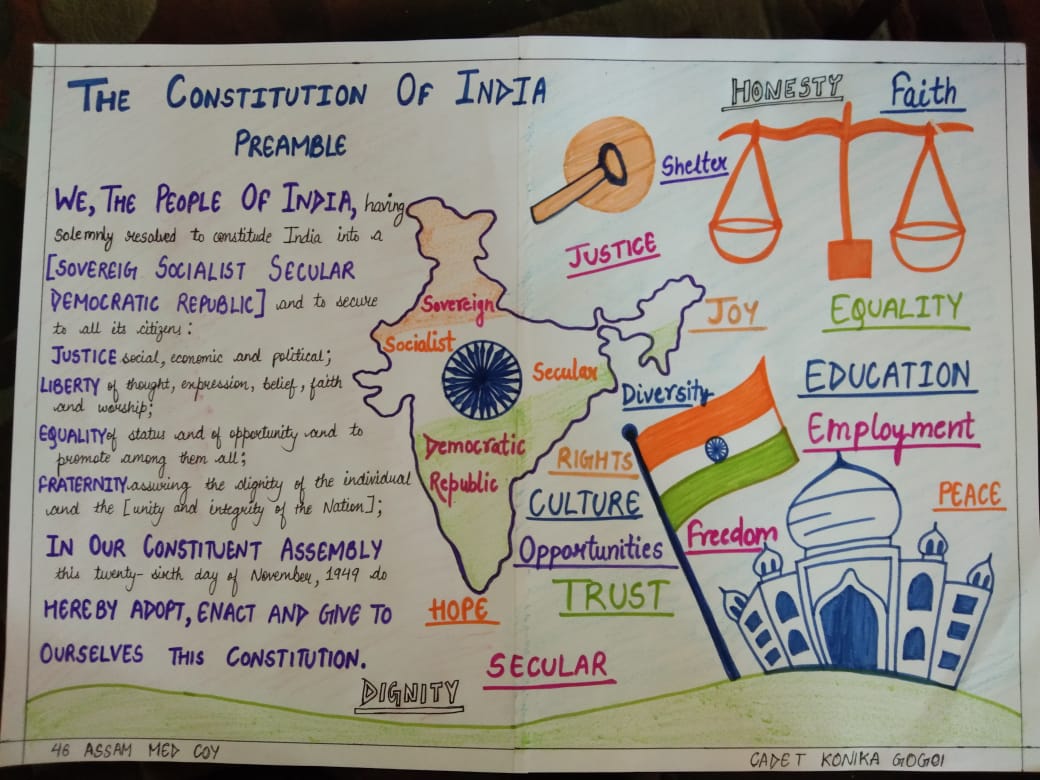 THE CONSTITUTION OF INDIA
PREAMBLE
WE, THE PEOPLE OF INDIA, having
solemnly resolved to constitude India into a
[SOVEREIG SOCIALIST SECULAR
DEMOCRATIC REPUBLIC] and to secure
to all its citizens:
JUSTICE social, economic and political;
LIBERTY of thought, expression, belief, faith
and worship;
EQUALITY of status and of opportunity and to
promote among them all;
FRATERNITY assuring the dignity of the individual
and the [unity and integrity of the Nation];
IN OUR CONSTITUENT ASSEMBLY
this twenty-sixth day of November, 1949 do
HEREBY ADOPT, ENACT AND GIVE TO
OURSELVES THIS CONSTITUTION.
Sovereign
Socialist
Secular
Democratic
Republic
HONESTY
Faith
Shelter
JUSTICE
JOY
EQUALITY
Diversity
EDUCATION
Employment
RIGHTS
CULTURE
PEACE
Freedom
Opportunities
TRUST
HOPE
SECULAR
DIGNITY
46 ASSAM MED COY
CADET KONIKA GOGOI